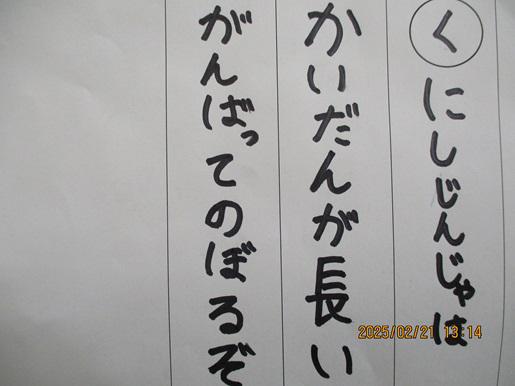 く
にしじんじゃは
かいだんが長い
がんばってのぼるぞ
2025/02/21 13:14